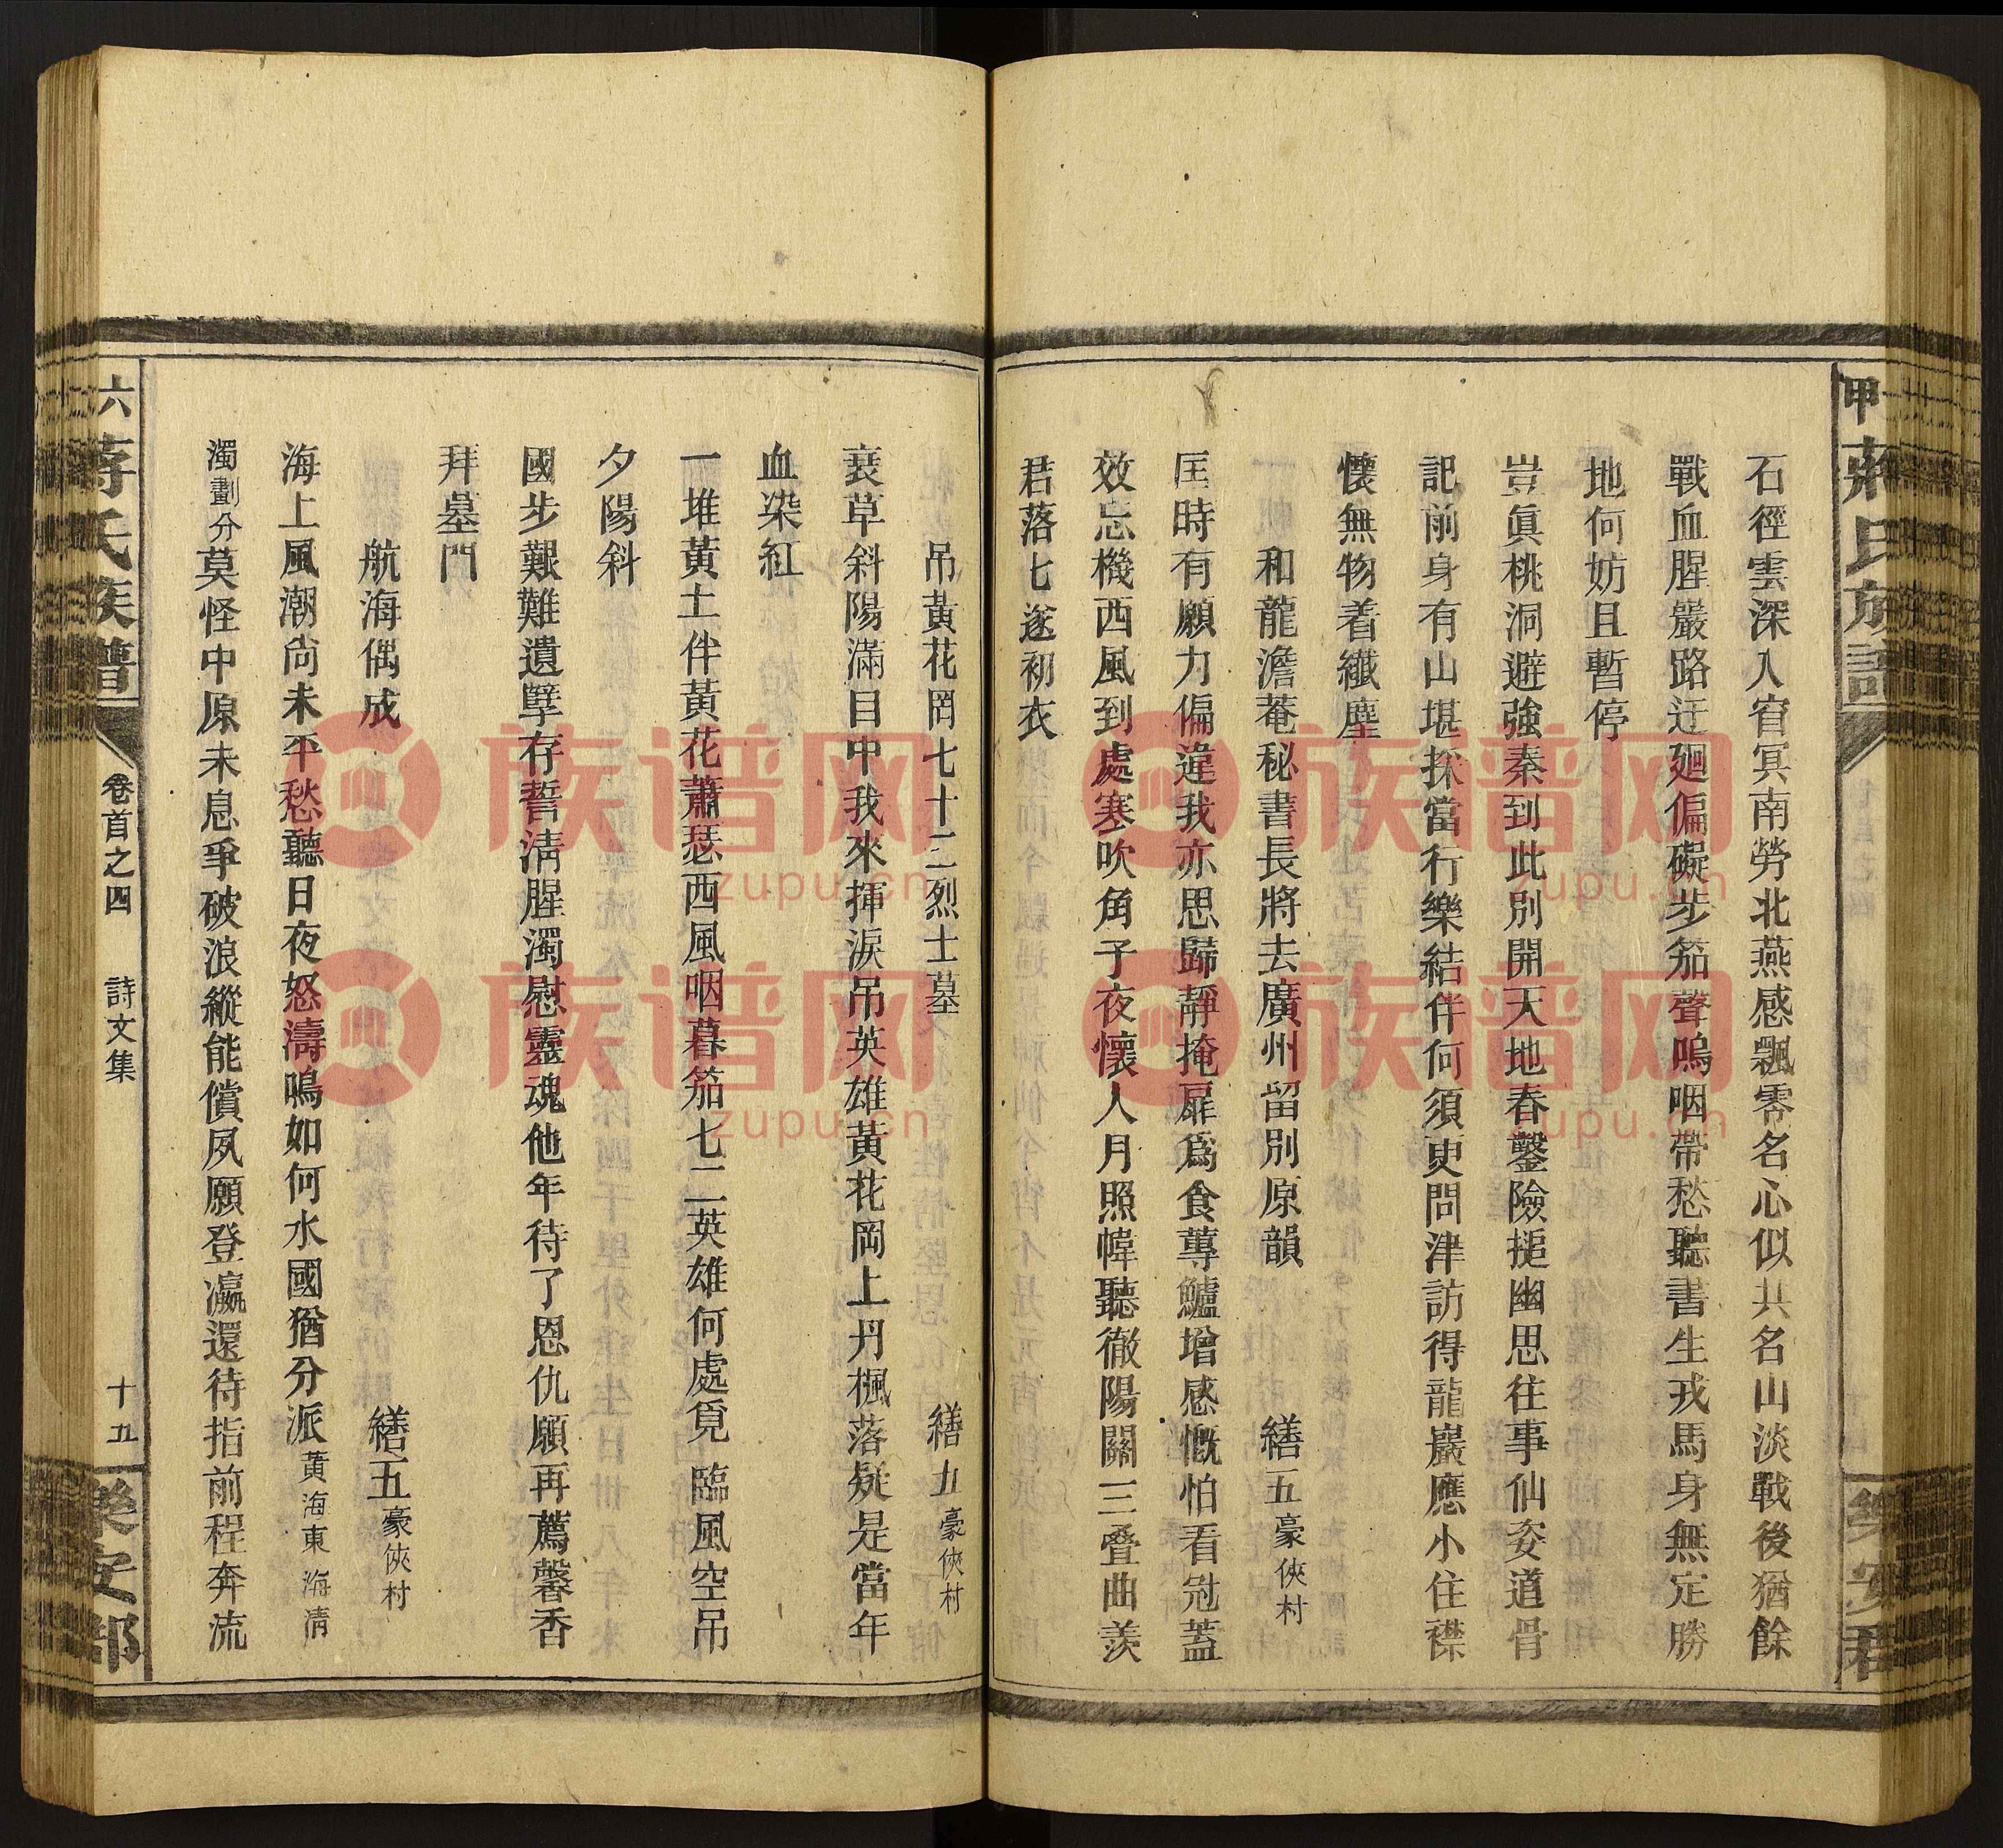 石徑雲深入窅冥南勞北燕感飄零名心似共名山淡戰後猶餘
戰血腥嚴路迂廻偏礙步笳聲嗚咽帶愁聽書生戎馬身無定勝
地何妨且暫停
豈眞桃洞避強秦到此別開天地春鑿險搥幽思往事仙姿道骨
記前身有山堪採當行樂結伴何須更問津訪得龍巖應小住襟
懷無物着纖塵
和龍澹菴秘書長將去廣州留別原韻 繕五豪俠村
匡時有願力偏違我亦思歸靜掩扉爲食蓴鱸增感慨怕看冠蓋
效忘機西風到處塞吹角子夜懷人月照幃聽徹陽關三叠曲羨
君落七遂初衣
吊黃花岡七十二烈士墓 繕五豪俠村
衰草斜陽滿目中我來揮淚吊英雄黃花岡上丹楓落疑是當年
血染紅
一堆黃土伴黃花蕭瑟西風咽暮笳七二英雄何處覓臨風空吊
夕陽斜
國步艱難遺孽存誓淸腥濁慰靈魂他年待了恩仇願再薦馨香
拜墓門
航海偶成 繕五豪俠村
海上風潮尙未平愁聽日夜怒濤鳴如何水國猶分派黃海東海淸
濁劃分莫怪中原未息爭破浪縱能償夙願登瀛還待指前程奔流
六 蔣氏族譜 卷首之四 詩文集 十五 樂安郡
甲 蔣氏族譜 樂安郡
族谱网 zupu.cn
族谱网 zupu.cn
族谱网 zupu.cn
族谱网 zupu.cn